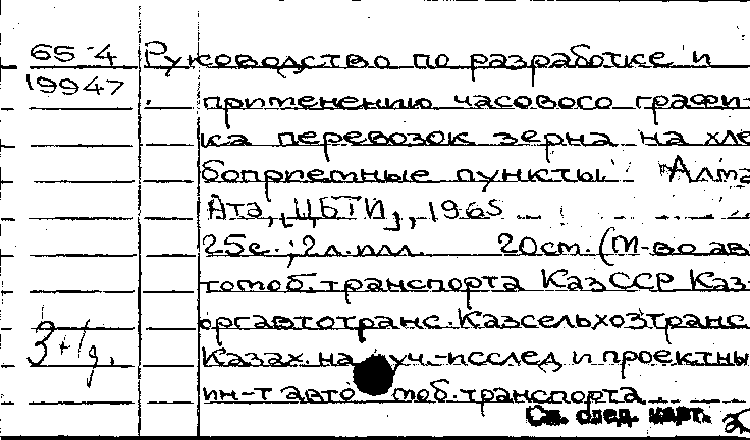 65-4 Руководство по разработке и
19947 применению часового графи-
ка перевозок зерна на хле
боприемные пункты. Алма
Ата, [ЦБТИ], 1965
25с.; 2л.илл. 20см. (М-во ав
томоб. транспорта КазССР Каз-
оргавтотранс. Казсельхозтранс
Казах. науч.-исслед и проектны
ин-т автомоб. транспорта
См. след. карт.